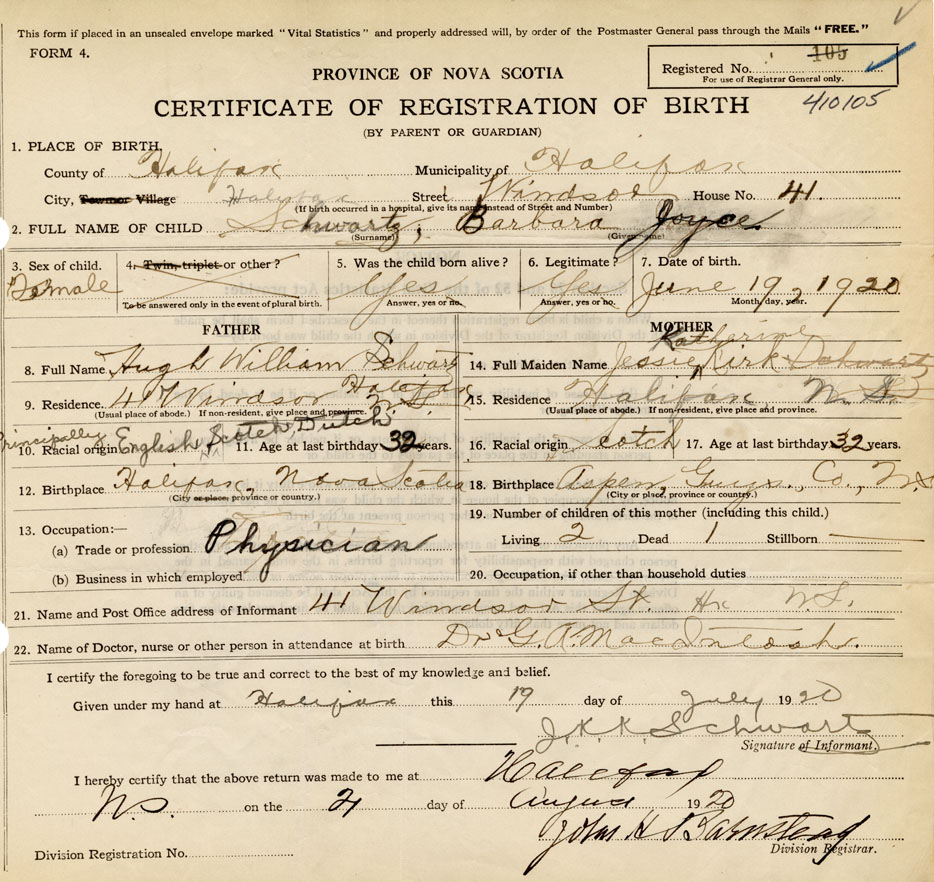 This form if placed in an unsealed envelope marked "Vital Statistics" and properly addressed will, by order of the Postmaster General pass through the Mails "FREE."
FORM 4.
105
Registered No.
For use of Registrar General only.
PROVINCE OF NOVA SCOTIA
CERTIFICATE OF REGISTRATION OF BIRTH
410105
(BY PARENT OR GUARDIAN)
1. PLACE OF BIRTH.
County of Halifax Municipality of Halifax
City, Town or Village Halifax Street Windsor House No. 41.
(If birth occurred in a hospital, give its name instead of Street and Number)
2. FULL NAME OF CHILD Schwartz, Barbara Joyce
(Surname) (Given name)
3. Sex of child. 4. Twin, triplet or other? 5. Was the child born alive? 6. Legitimate? 7. Date of birth.
Female Yes Yes June 19, 1920
To be answered only in the event of plural birth. Answer, yes or no. Answer, yes or no. Month, day, year.
FATHER MOTHER
Katherine
8. Full Name Hugh William Schwartz 14. Full Maiden Name Jessie Kirk Schwartz
Halifax
9. Residence. 41 Windsor N.S. 15. Residence Halifax, N.S.
(Usual place of abode.) If non-resident, give place and province. (Usual place of abode.) If non-resident, give place and province.
Principally
10. Racial origin English, Scotch, Dutch 11. Age at last birthday 32 years. 16. Racial origin Scotch 17. Age at last birthday 32 years.
12. Birthplace Halifax, Nova Scotia 18. Birthplace Aspen, Guys., Co., N.S
(City or place, province or country.) (City or place, province or country.)
19. Number of children of this mother (including this child.)
13. Occupation:—
(a) Trade or profession Physician Living 2 Dead 1 Stillborn
(b) Business in which employed 20. Occupation, if other than household duties
21. Name and Post Office address of Informant 41 Windsor St. Hx N.S.
22. Name of Doctor, nurse or other person in attendance at birth Dr G. A. MacIntosh.
I certify the foregoing to be true and correct to the best of my knowledge and belief.
Given under my hand at Halifax this 19 day of July 1920
J.K.K. Schwartz
Signature of Informant.
I hereby certify that the above return was made to me at Halifax
N.S. on the 21 day of August 1920
John H S Barnstead
Division Registrar.
Division Registration No.